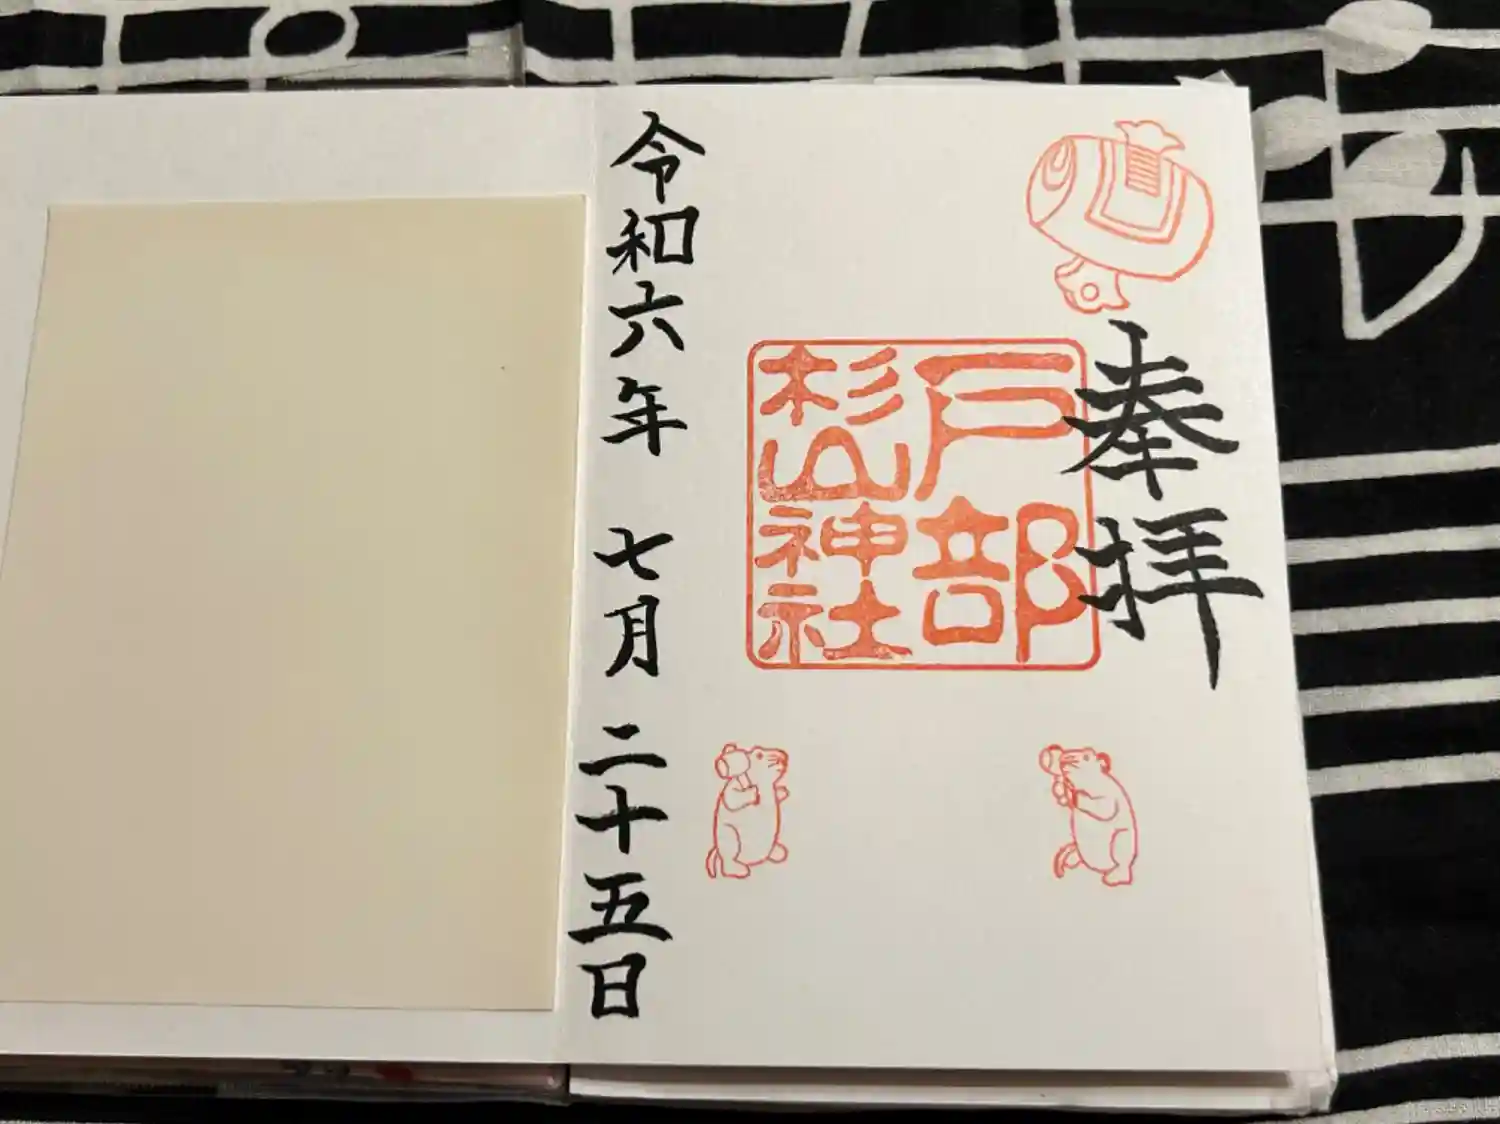 奉拝
戸部
杉山神社
令和六年 七月 二十五日